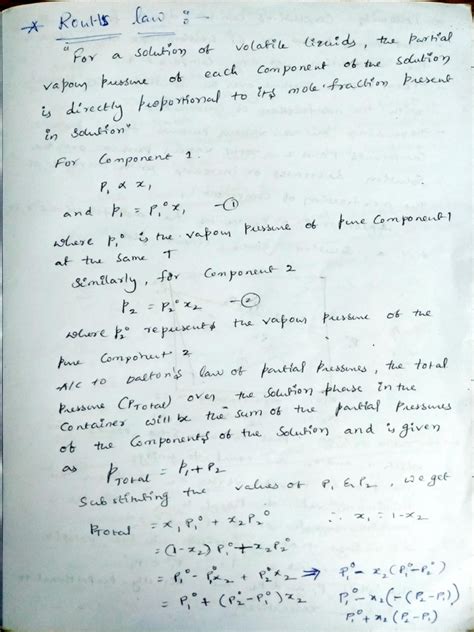 * Roults law :-
"For a solution of volatile liquids, the partial
vapour pressure of each component of the solution
is directly proportional to its mole fraction present
in solution"
For Component 1.
P₁ ∝ x₁
and P₁ = P₁° x₁ —①
where P₁° is the vapour pressure of pure Component 1
at the same T
Similarly, for Component 2
P₂ = P₂° x₂ —②
where P₂° represents the vapour pressure of the
pure Component 2
A/c to Dalton's law of partial pressures, the total
pressure (PTotal) over the solution phase in the
container will be the sum of the partial pressures
of the Components of the solution and is given
as PTotal = P₁ + P₂
Substituting the values of P₁ & P₂, we get
PTotal = x₁P₁° + x₂P₂° ∴ x₁ = 1-x₂
= (1-x₂) P₁° + x₂P₂°
= P₁° - P₁°x₂ + P₂°x₂ ⇒ P₁° - x₂(P₁° - P₂°)
= P₁° + (P₂° - P₁°) x₂ P₁° - x₂(-(P₂ - P₁))
P₁° + x₂(P₂ - P₁)